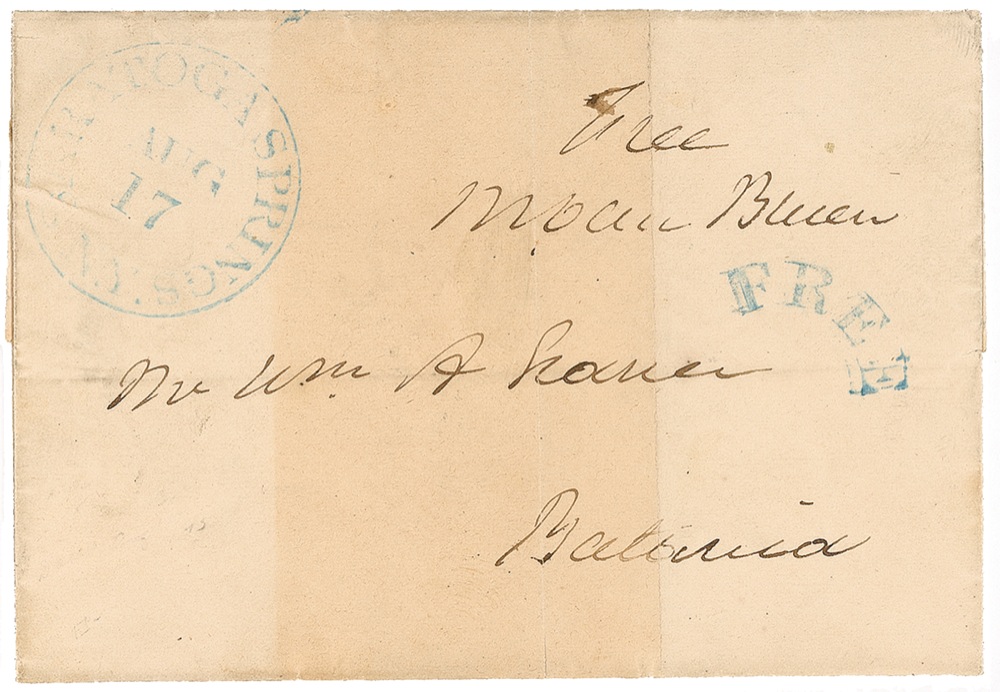 SARATOGA SPRINGS. N.Y.
AUG
17
Free
M Van Buren
FREE
Mr Wm A
Batavia